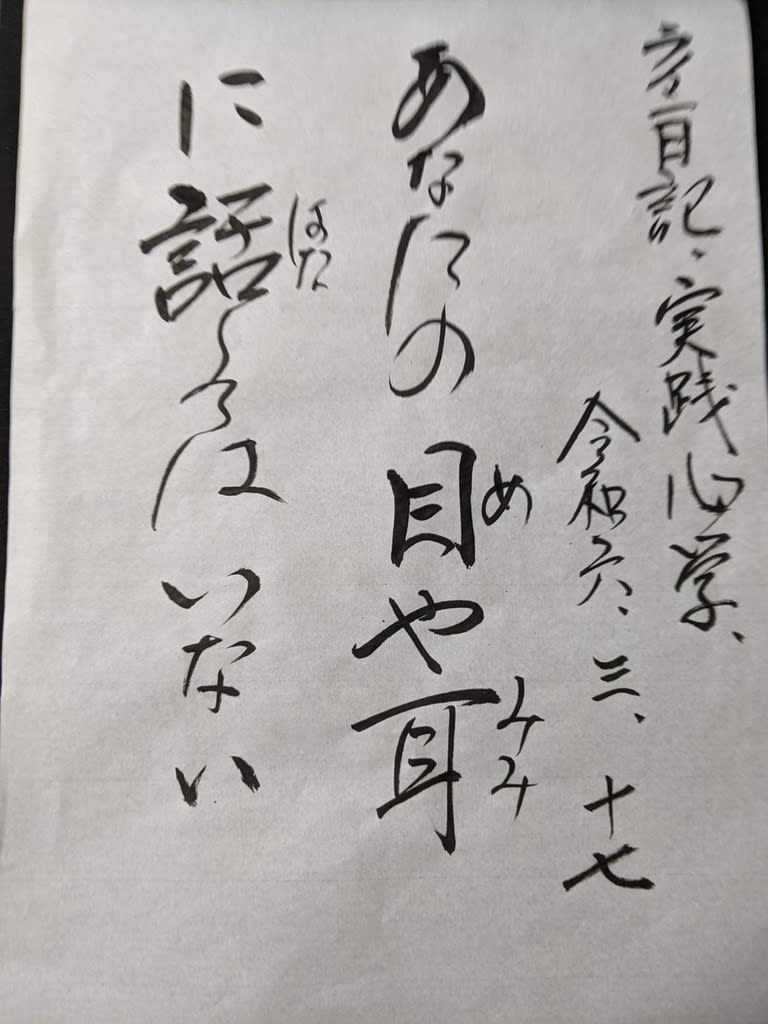 日記、実践心学、
令和六、三、十七
め
みみ
あなたの目や耳
はな
に話してはいない